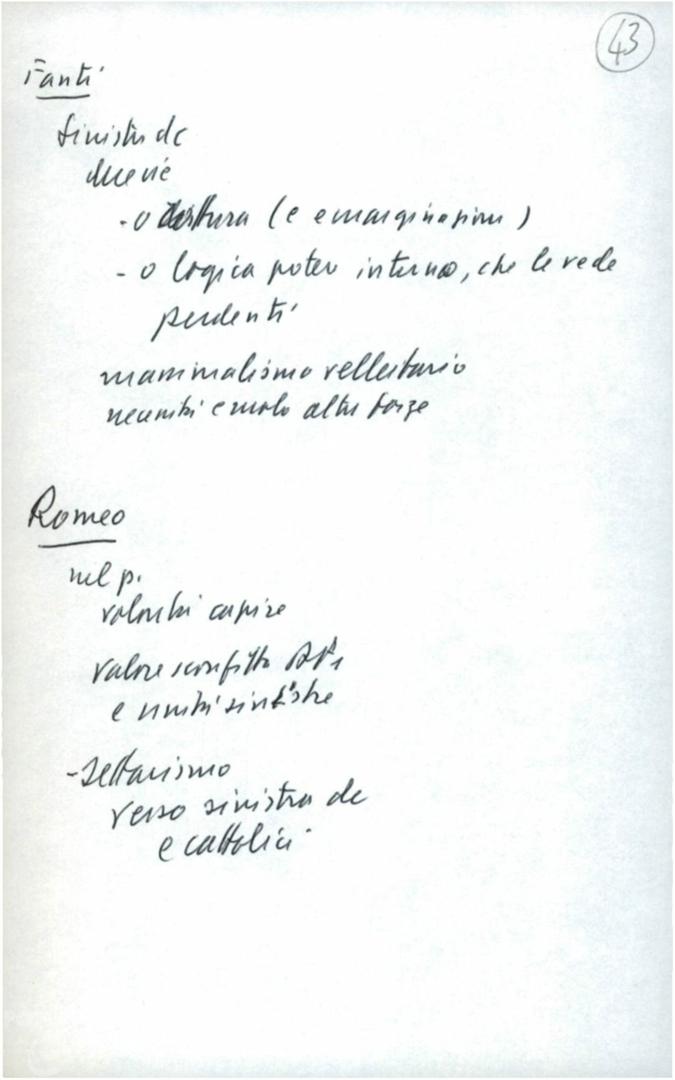 43
Fanti
Sinistra dc
due vie
- o rottura (e emarginazione)
- o logica potere interno, che le vede
perdenti
massimalismo velleitario
necessità e ruolo altre forze
Romeo
nel p.
volontà capire
valore sconfitta
e unità sinistre
- Settarismo
verso sinistra dc
e cattolici